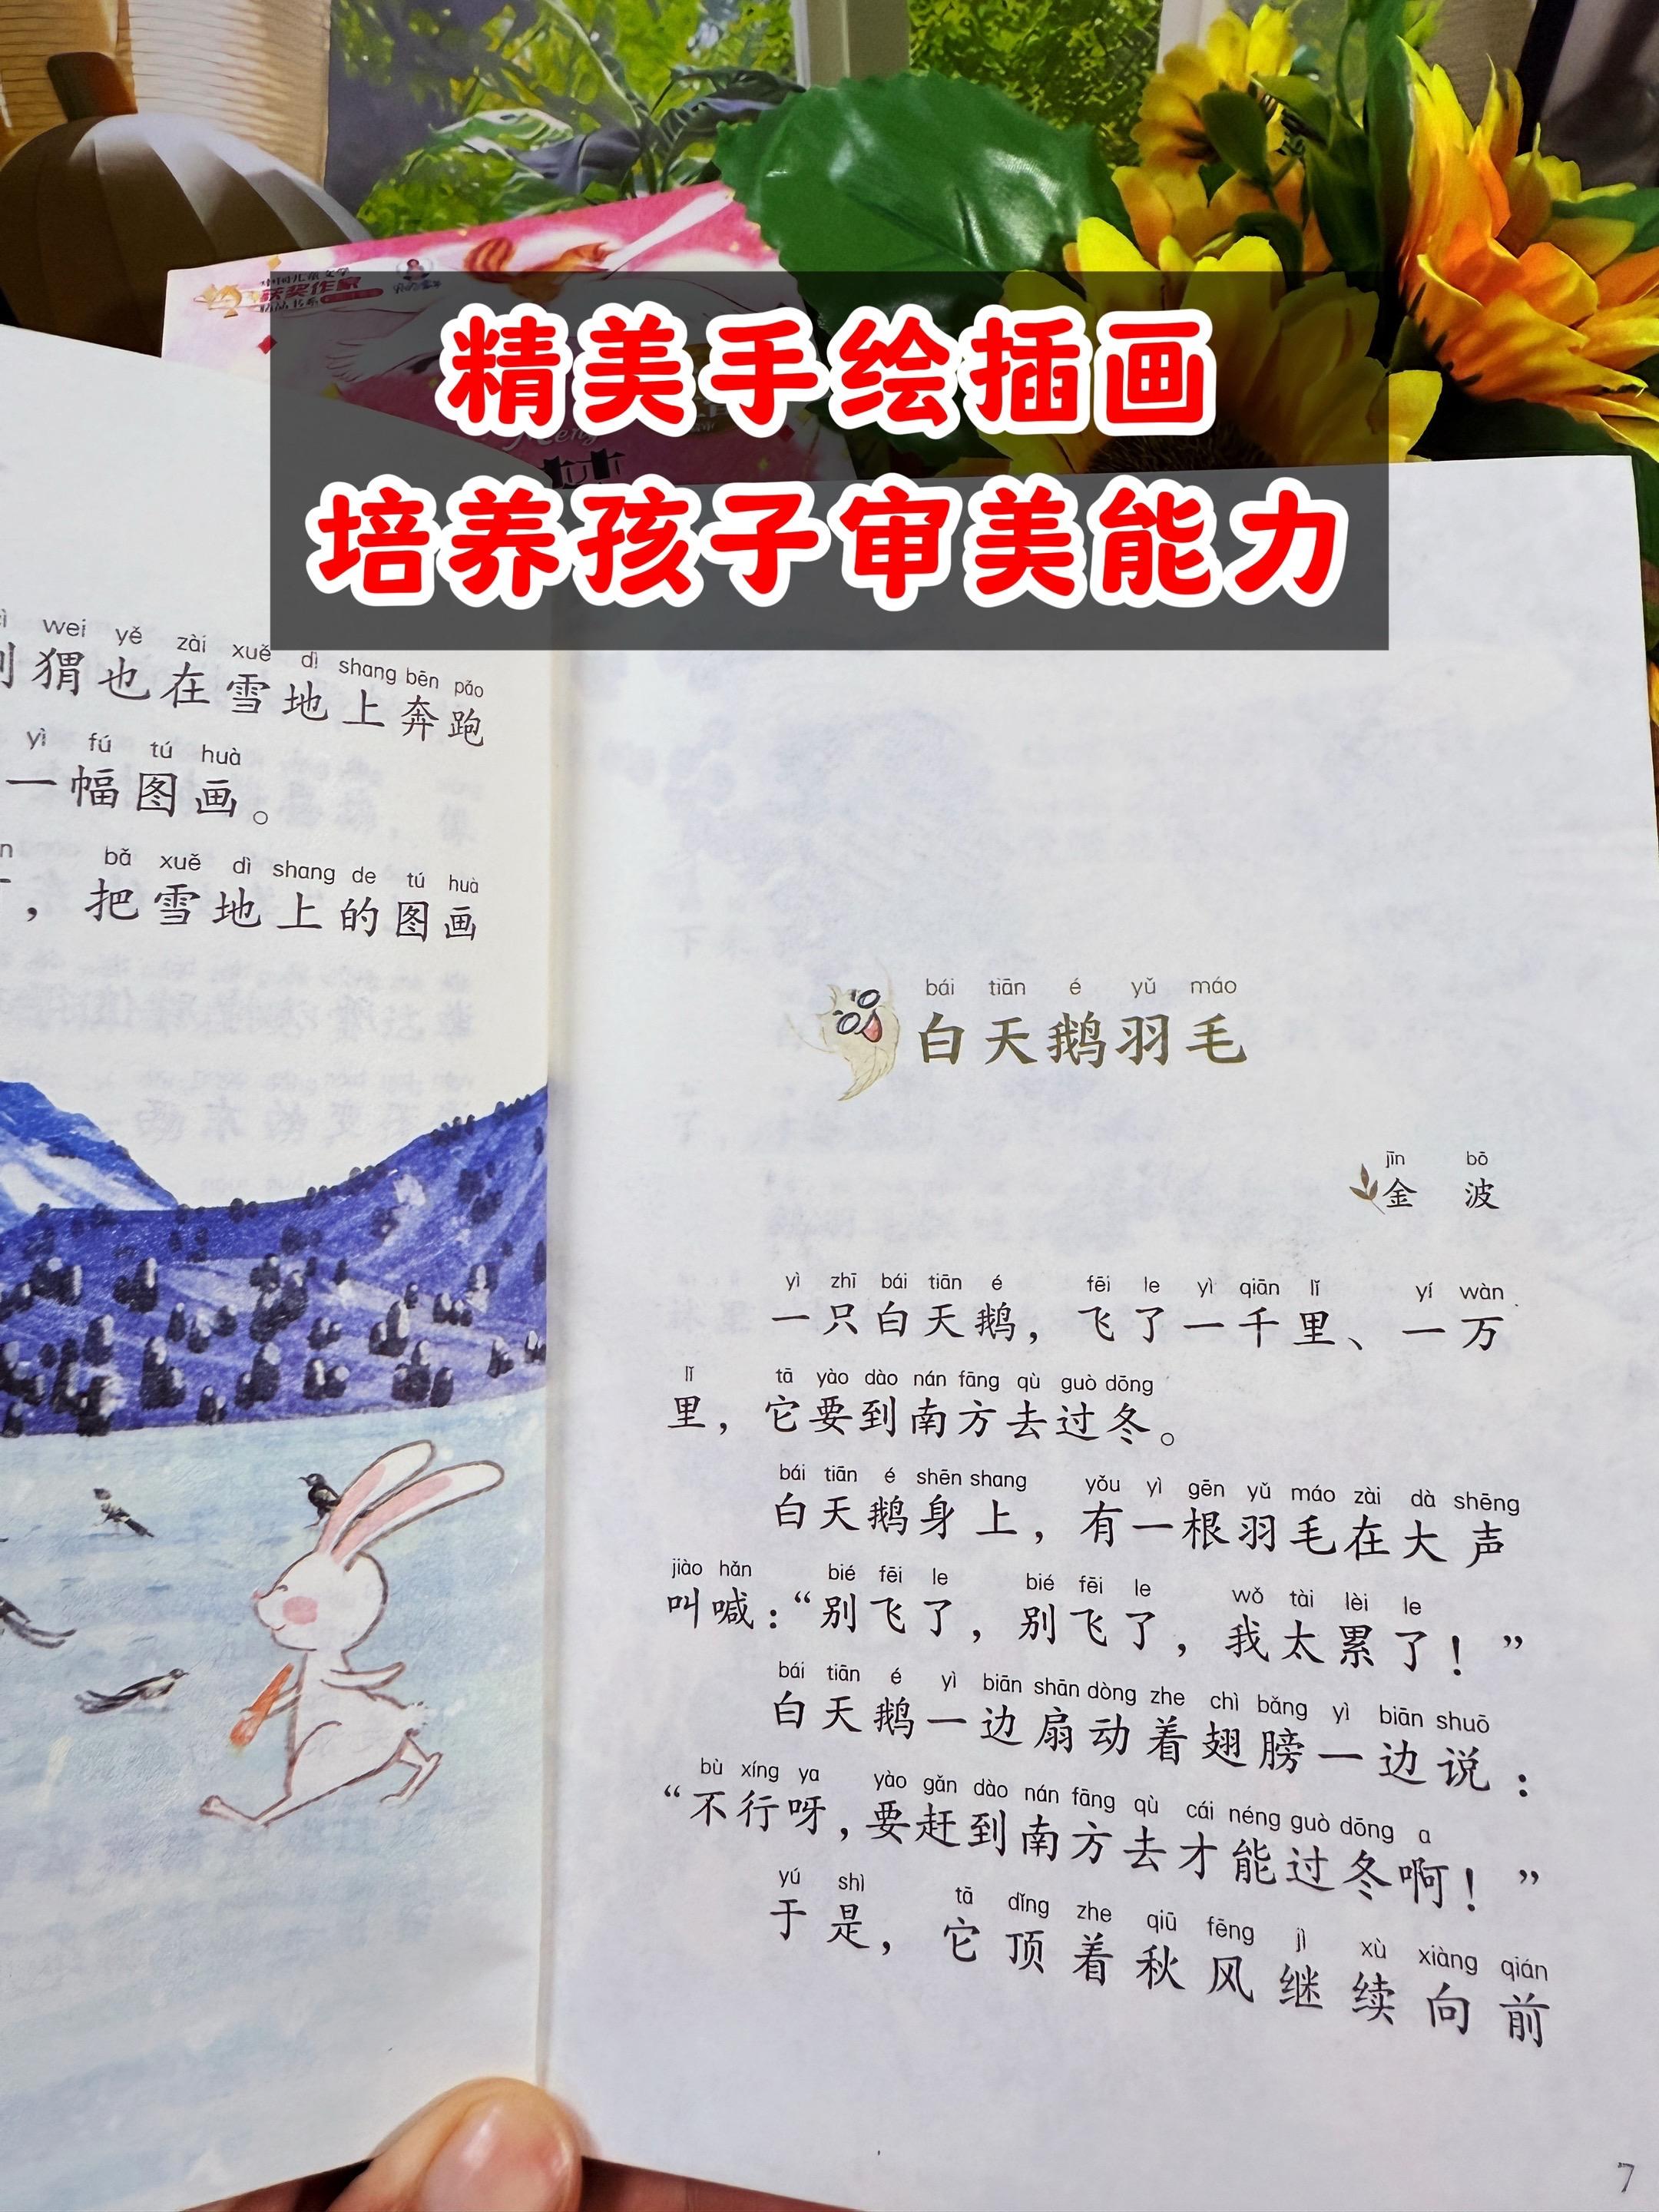 精美手绘插画
培养孩子审美能力
获奖作家
wei yě zài xuě dì shang bēn pǎo
猬也在雪地上奔跑
yì fú tú huà
一幅图画。
bǎ xuě dì shang de tú huà
，把雪地上的图画
bái tiān é yǔ máo
白天鹅羽毛
jīn bō
金 波
yì zhī bái tiān é fēi le yì qiān lǐ yí wàn
一只白天鹅，飞了一千里、一万
lǐ tā yào dào nán fāng qù guò dōng
里，它要到南方去过冬。
bái tiān é shēn shang yǒu yì gēn yǔ máo zài dà shēng
白天鹅身上，有一根羽毛在大声
jiào hǎn bié fēi le bié fēi le wǒ tài lèi le
叫喊：“别飞了，别飞了，我太累了！”
bái tiān é yì biān shān dòng zhe chì bǎng yì biān shuō
白天鹅一边扇动着翅膀一边说：
bù xíng ya yào gǎn dào nán fāng qù cái néng guò dōng a
“不行呀，要赶到南方去才能过冬啊！”
yú shì tā dǐng zhe qiū fēng jì xù xiàng qián
于是，它顶着秋风继续向前
7